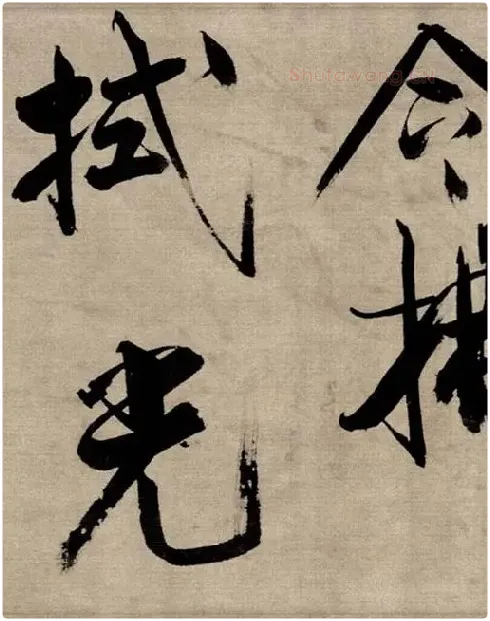 今
拭光
Shufawang.cn